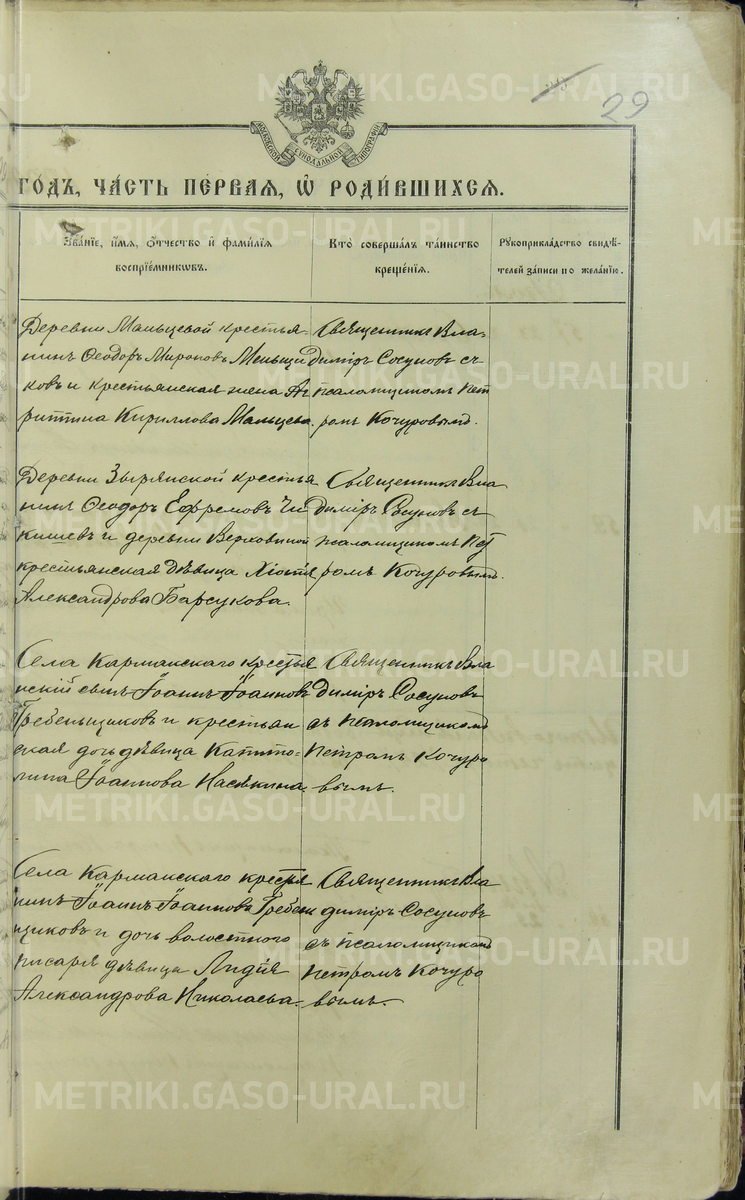 29
МОСКОВСКОЙ СѴНОДАЛЬНОЙ ТИПОГРАФІИ
ГОДЪ, ЧАСТЬ ПЕРВАЯ, Ѡ РОДИВШИХСЯ.
Званіе, имя, отчество и фамилія воспріемниковъ.
Кто совершалъ таинство крещенія.
Рукоприкладство свидѣтелей записи по желанію.
Деревни Мальцевой крестья
нинъ Ѳеодоръ Мироновъ Меньщи
ковъ и крестьянская жена Аг
риппина Кириллова Мальцева.
Священникъ Вла-
диміръ Сосуновъ съ
псаломщикомъ Пет
ромъ Кочуровымъ.
Деревни Зырянской крестья
нинъ Ѳеодоръ Ефремовъ Чи
кишевъ и деревни Верховиной
крестьянская дѣвица Хіонія
Александрова Барсукова.
Священникъ Вла
диміръ Сосуновъ съ
псаломщикомъ Пет
ромъ Кочуровымъ.
Села Кармакскаго крестья
нскій сынъ Іоаннъ Іоанновъ
Гребеньщиковъ и крестьян
ская дочь дѣвица Капито-
лина Іоаннова Насѣкина.
Священникъ Вла
диміръ Сосуновъ
съ псаломщикомъ
Петромъ Кочуро
вымъ.
Села Кармакскаго крестья
нинъ Іоаннъ Іоанновъ Гребен
щиковъ и дочь волостного
писаря дѣвица Лидія
Александрова Николаева.
Священникъ Вла
диміръ Сосуновъ
съ псаломщикомъ
Петромъ Кочуро
вымъ.
METRIKI.GASO-URAL.RU
METRIKI.GASO-URAL.RU
METRIKI.GASO-URAL.RU
METRIKI.GASO-URAL.RU
METRIKI.GASO-URAL.RU
METRIKI.GASO-URAL.RU
METRIKI.GASO-URAL.RU
METRIKI.GASO-URAL.RU